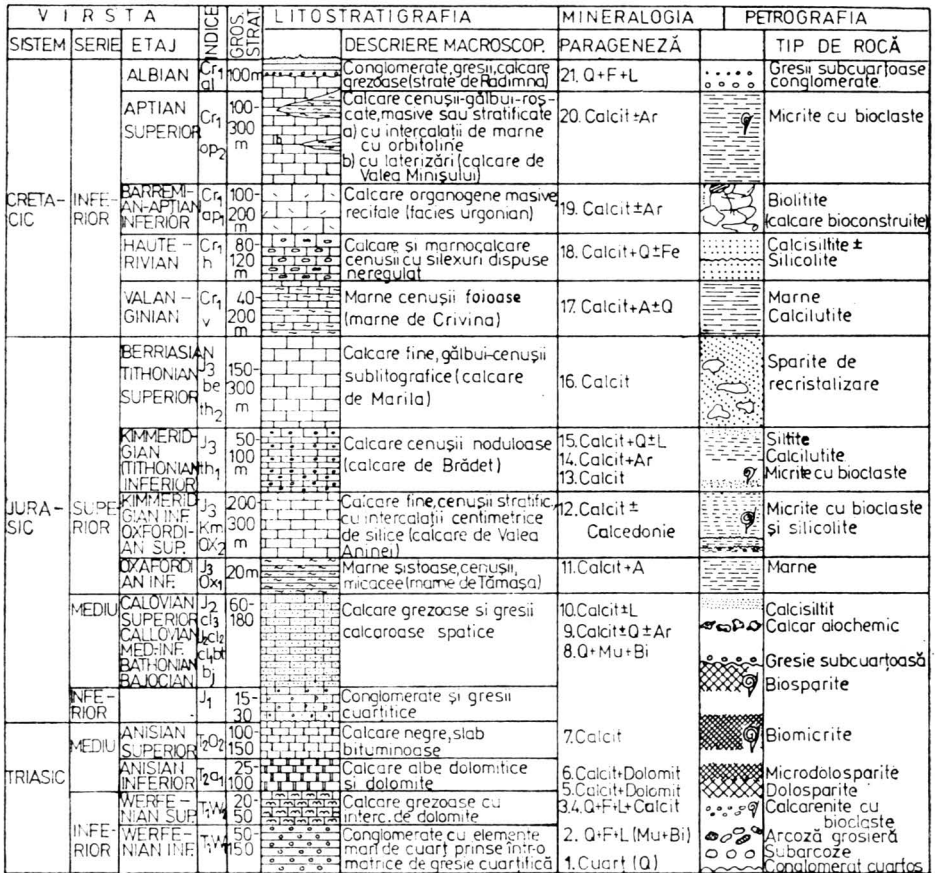 VIRSTA INDICE GROS. STRAT. LITOSTRATIGRAFIA MINERALOGIA PETROGRAFIA
SISTEM SERIE ETAJ DESCRIERE MACROSCOP. PARAGENEZĂ TIP DE ROCĂ
CRETA-
CIC
INFE-
RIOR
ALBIAN
Cr1
al
100m
Conglomerate, gresii, calcare
grezoase (strate de Radimna)
21. Q+F+L
Gresii subcuarțoase
conglomerate.
APTIAN
SUPERIOR
Cr1
ap2
100-
300
m
a
b
Calcare cenușii-gălbui-roș-
cate, masive sau stratificate
a) cu intercalații de marne
cu orbitoline
b) cu laterizări (calcare de
Valea Minișului)
20. Calcit ±Ar
Micrite cu bioclaste
BARREMI-
AN-APTIAN
INFERIOR
Cr1
ap1
100-
200
m
Calcare organogene masive
recifale (facies urgonian)
19. Calcit±Ar
Biolitite
(calcare bioconstruite)
HAUTE-
RIVIAN
Cr1
h
80-
120
m
Calcare si marnocalcare
cenusii cu silexuri dispuse
neregulat
18. Calcit+Q±Fe
Calcisiltite ±
Silicolite
VALAN-
GINIAN
Cr1
v
40-
200
m
Marne cenușii foioase
(marne de Crivina)
17. Calcit+A±Q
Marne
Calcilutite
JURA-
SIC
SUPE-
RIOR
BERRIASIAN
TITHONIAN
SUPERIOR
J3
be
th2
150-
300
m
Calcare fine, gălbui-cenușii
sublitografice (calcare
de Marila)
16. Calcit
Sparite de
recristalizare
KIMMERID-
GIAN
(TITHONIAN
INFERIOR
J3
th1
50-
100
m
Calcare cenușii noduloase
(calcare de Brădet)
15. Calcit+Q±L
14. Calcit+Ar
13. Calcit
Siltite
Calcilutite
Micrite cu bioclaste
KIMMERID
GIAN INF.
OXFORDI-
AN SUP.
J3
Km
OX2
200-
300
m
Calcare fine, cenușii stratific.
cu intercalații centimetrice
de silice (calcare de Valea
Aninei)
12. Calcit ±
Calcedonie
Micrite cu bioclaste
și silicolite
OXAFORDI
AN INF.
J3
Ox1
20m
Marne șistoase, cenușii,
micacee (marne de Tămașa)
11. Calcit+A
Marne
MEDIU
CALOVIAN
SUPERIOR
CALLOVIAN
MED-INF.
BATHONIAN
BAJOCIAN
J2
cl3
J2cl2
cl1bt
bj
60-
180
Calcare grezoase si gresii
calcaroase spatice
10. Calcit±L
9. Calcit±Q±Ar
8. Q+Mu+Bi
Calcisiltit
Calcar alochemic
Gresie subcuarțoasă
Biosparite
INFE-
RIOR
J1
15-
30
Conglomerate și gresii
cuartitice
TRIASIC
MEDIU
ANISIAN
SUPERIOR
100-
150
Calcare negre, slab
bituminoase
7. Calcit
Biomicrite
ANISIAN
INFERIOR
25-
100
Calcare albe dolomitice
și dolomite
6. Calcit+Dolomit
5. Calcit+Dolomit
Microdolosparite
Dolosparite
INFE-
RIOR
WERFE-
NIAN SUP.
20-
50
Calcare grezoase cu
interc. de dolomite
3.4. Q+F+L+Calcit
Calcarenite cu
bioclaste
WERFE-
NIAN INF.
50-
150
Conglomerate cu elemente
mari de cuarț prinse într-o
matrice de gresie cuartifică
2. Q+F+L (Mu+Bi)
1. Cuarț (Q)
Arcoză grosieră
Subarcoze
Conglomerat cuarțos